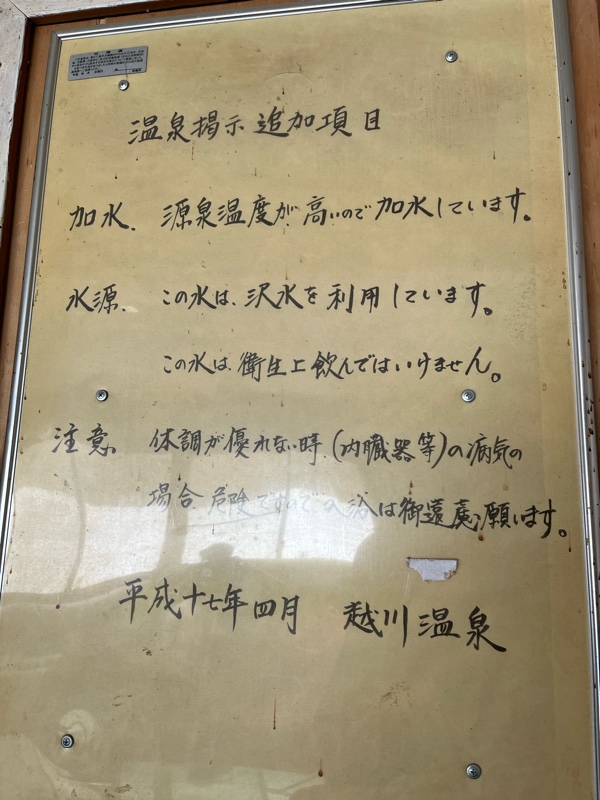 温泉掲示追加項目
加水. 源泉温度が高いので加水しています。
水源. この水は、沢水を利用しています。
この水は、衛生上飲んではいけません。
注意 体調が優れない時、(内臓器等)の病気の
場合 危険ですので入浴は御遠慮願います。
平成十七年四月 越川温泉